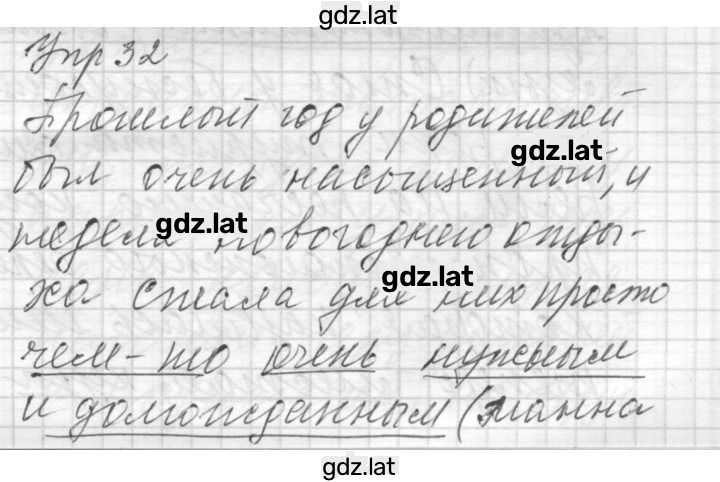 gdz.lat
Упр 32
Прошлый год у родителей
gdz.lat
был очень насыщенный, и
gdz.lat
неделя новогоднего отды-
gdz.lat
ха стала для них просто
чем-то очень нужным
и долгожданным (манна
gdz.lat